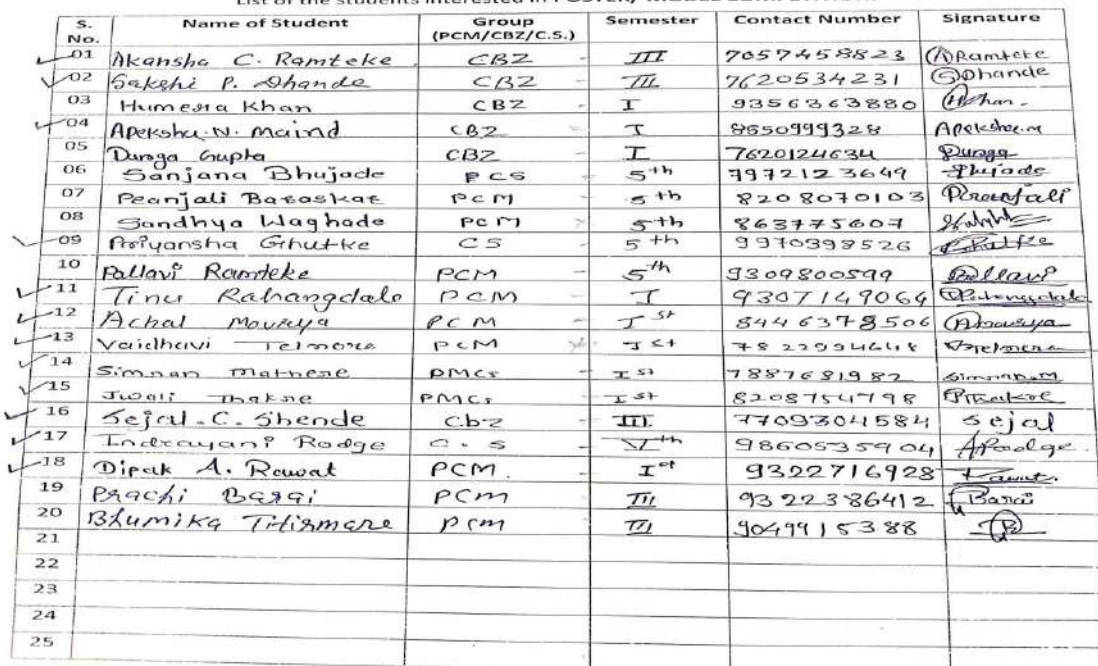 List of the students interested in POSTER/ MODEL COMPETITION
S. No. Name of Student Group (PCM/CBZ/C.S.) Semester Contact Number Signature
01 Akansha C. Ramteke CBZ III 7057458823 ARamteke
02 Sakshi P. Dhande CBZ III 7620534231 SDhande
03 Humera Khan CBZ I 9356363880
04 Apeksha.N. Maind CBZ I 8550999328 Apeksha.m
05 Durga Gupta CBZ I 7620124634 Durga
06 Sanjana Bhujade PCS 5th 7972123649 Bhujade
07 Peanjali Basaskar PCM 5th 8208070103 Preanjali
08 Sandhya Waghade PCM 5th 863775607
09 Priyansha Ghutke CS 5th 9970398526
10 Pallavi Ramteke PCM 5th 9309800599 Pallavi
11 Tinu Rahangdale PCM I 9307149064 Rahangdale
12 Achal Mourya PCM Ist 8446378506 Amourya
13 Vaidhavi Telmore PCM Ist 7822994648 Vtelmore
14 Simran Mathere PMCs Ist 7887681982 Simran.M
15 Jwali Thakre PMCs Ist 8208754798
16 Sejal.C.Shende Cbz III 7709304584 Sejal
17 Indrayani Rodge C.S Vth 9860535904
18 Dipak A. Rawat PCM. Ist 9322716928 Rawat.
19 Prachi Barai PCM III 9322386412 Barai
20 Bhumika Titirmare PCM III 9049915388 B
21
22
23
24
25